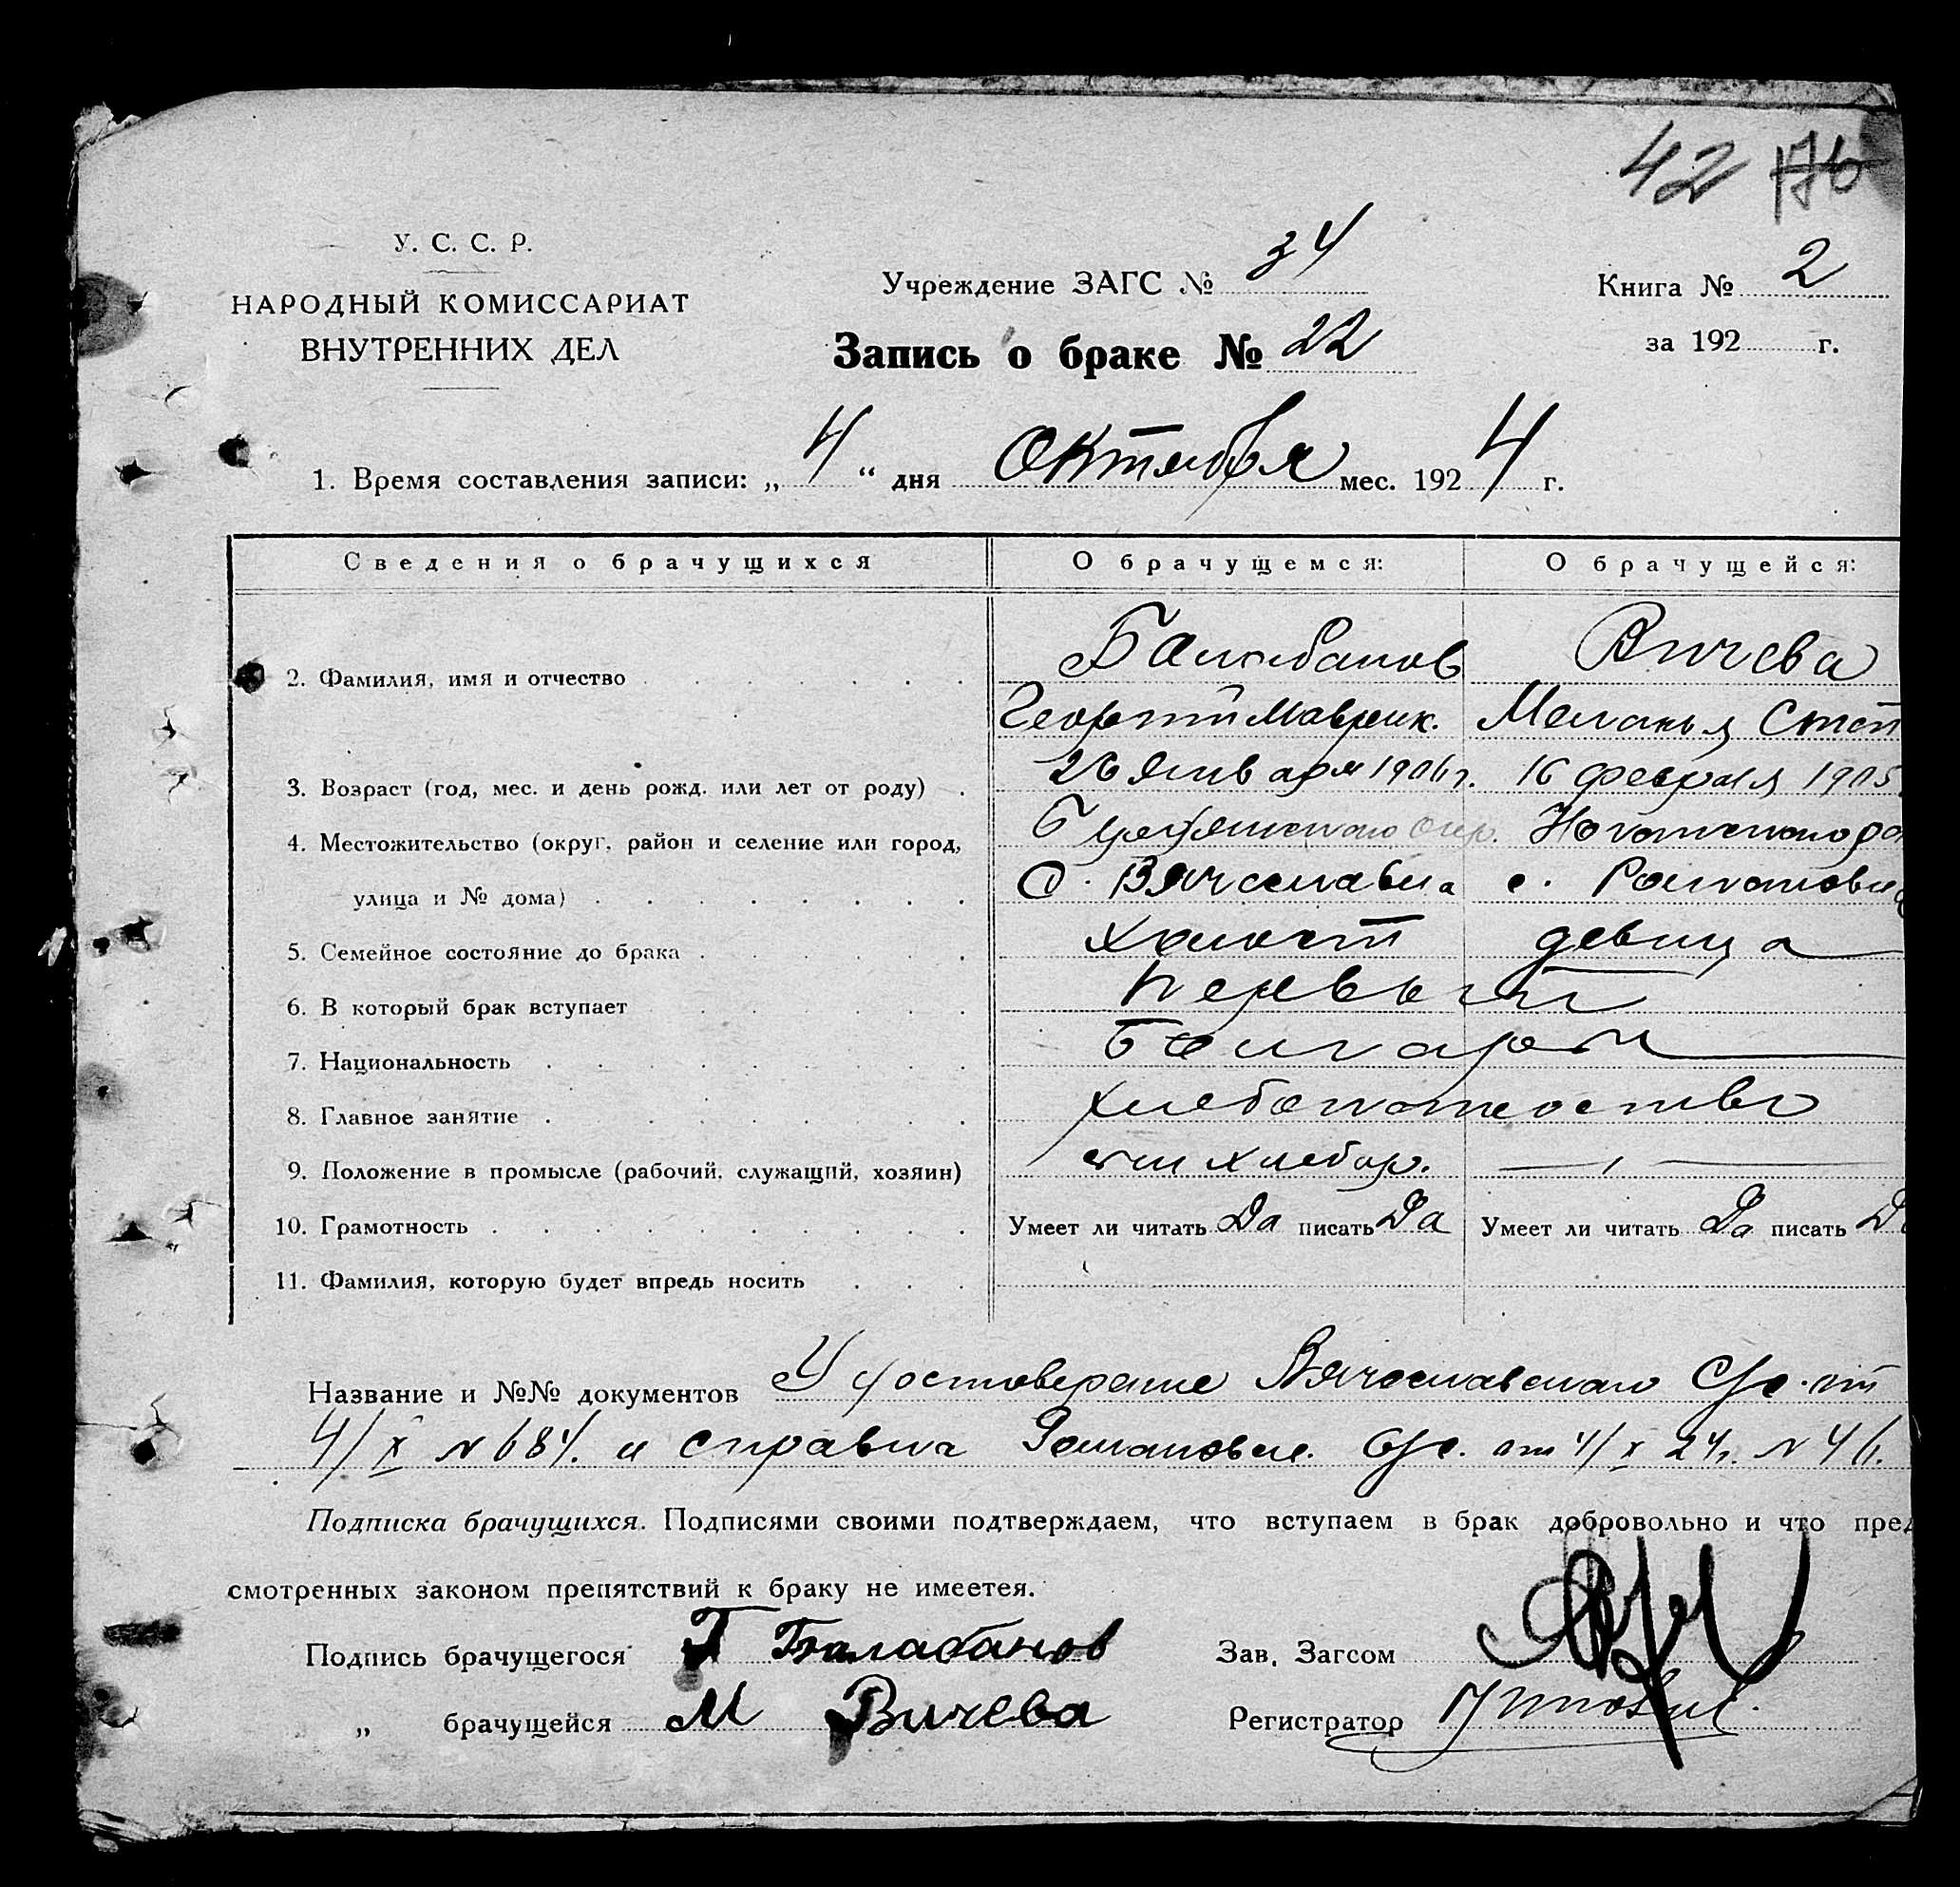 42 176
У. С. С. Р.
НАРОДНЫЙ КОМИССАРИАТ
ВНУТРЕННИХ ДЕЛ
Учреждение ЗАГС № 34
Книга № 2
Запись о браке № 22
за 192 г.
1. Время составления записи: „ 4 “ дня Октября мес. 1924 г.
Сведения о брачущихся О брачущемся: О брачущейся:
2. Фамилия, имя и отчество Балабанов Вичева
Георгий Маврик. Меланья Степ
3. Возраст (год, мес. и день рожд. или лет от роду) 26 Января 1906 г. 16 февраля 1905
4. Местожительство (округ, район и селение или город, Ногайского ра
улица и № дома) С. Вячеславка с. Романовка
5. Семейное состояние до брака холост девица
6. В который брак вступает первый
7. Национальность Болгары
8. Главное занятие хлебопашество
9. Положение в промысле (рабочий, служащий, хозяин) хлебор.
10. Грамотность Умеет ли читать Да писать Да Умеет ли читать Да писать Да
11. Фамилия, которую будет впредь носить
Название и №№ документов Удостоверение Вячеславского С/с. от
4/X № 684. и справка Романовск. с/с. от 4/X 24 г. № 46.
Подписка брачущихся. Подписями своими подтверждаем, что вступаем в брак добровольно и что пред
смотренных законом препятствий к браку не имеетея.
Подпись брачущегося Г Балабанов Зав. Загсом
„ брачущейся М Вичева Регистратор